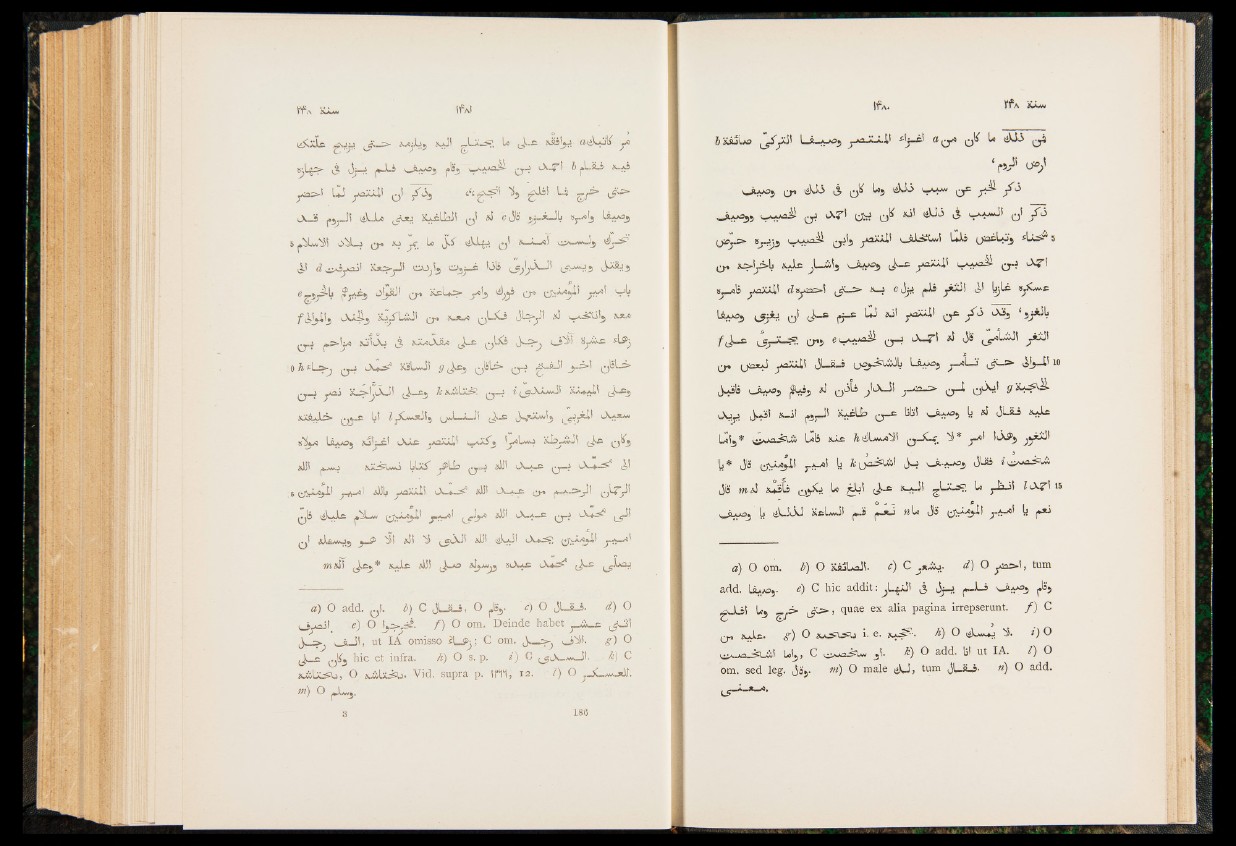 ١٤٨٠ سنة ٢٤٨
فمن ذلك ما كان من a اغزاء المنتصر وصيفا التركىّ صائفة b
ارض الروم،
ذكر الخبر عن سبب ذلك وما كان فى ذلك من وصيف
ذكر ان السبب فى ذلك انه كان بين احمد بن الخصيب ووصيف
5 شحناء وتباغض فلمّا استخلف المنتصر وابن الخصيب وزيره حرّض
احمد بن الخصيب المنتصر على وصيف واشار عليه باخراجه من
عسكره غازيا الى الثغر فلم يزل c به حتى احضره d المنتصر فامره
بالغزو، وقد ذكر عن المنتصر انه لمّا عزم على ان يغزى وصيفا
الثغر الشأمىّ قال له احمد بن الخصيب e ومن يجترئ على f
10 الموالى حتى تأمر وصيفا بالشخوص فقال المنتصر لبعض من
الحجبة g ايذن لمن حضر الدار فأذن له وفيهم وصيف فاقبل
عليه فقال له يا وصيف اتانا عن طاغية الروم انه اقبل يريد
الثغور وهذا امر *لا يمكن الامساك h عنه فامّا شخصتَ *وامّا
شخصتُ i فقال وصيف بل اشخصُ k يا امير المؤمنين قال *يا
15 احمد l انظر ما يحتاج اليه على ابلغ ما يكون فأقمه له m قال
نعم يا امير المؤمنين قال ما n نعم قم الساعة لذلك يا وصيف
a) O om. b) O الصائفة. c) C يشعر. d) O احضر, tum
add. وصيفا. e) C hic addit: وقام وصيف فلم يزل فى النهار
حتى خرج وما افلح, quae ex alia pagina irrepserunt. f) C
من عليه. g) O i. e. h) O لا يمسك. i) O
واما, C او. k) O add. انا ut IA. l) O
om. sed leg. وقال. m) O male لك, tum فقال. n) O add.
معنى.
سنة ٢٤٨ ١٤٨١
مُر كاتبك a يوافقه على ما يحتاج اليه ويلزمه حتى يزيح علّتك
فيه فقام b احمد بن الخصيب وقام وصيف فلم يزل فى جهازه
حتى خرج فما افلح ولا انجح، وذُكر ان المنتصر لمّا احضر
وصيفا وامره بالغزو قال c له ان الطاغية يعنى ملك الروم قد
5 تحرّك ولست آمنه ان يهلك كلّ ما يمرّ به من بلاد الاسلام
ويقتل ويسبى الذرارى فاذا غزوت واردت الرجعة انصرفت d الى
باب امير المؤمنين من فورك وامر جماعة من القوّاد وغيرهم بالخروج e
معه وانتخب له الرجال فكان معه من الشاكريّة والجند والموالى f
زهاء عشرة آلاف رجل فكان على مقدّمته فى بدأته مزاحم بن
10 خاقان اخو الفتح بن خاقان وعلى g الساقة محمد بن رجاء h
وعلى الميمنة السندىّ i بن بختاشه k وعلى الدرّاجة نصر بن
سعيد المغربىّ واستعمل على الناس والعسكر l ابا عون خليفته
وكان على الشرطة بسامرّا وكتب المنتصر عند اغزائه وصيفا مولاه
الى محمّد بن عبد الله بن طاهر كتابا نسخته بسم الله
15 الرحمان الرحيم من عبد الله محمّد المنتصر بالله امير المؤمنين
الى محمّد بن عبد الله مولى امير المؤمنين سلام عليك فانّ
امير المؤمنين يحمد اليك الله الذى لا اله الّا هو ويسعله ان
يصلّى على محمّد عبده ورسوله صلى الله عليه *وعلى آله m
a) O add. ان. b) C فقال, O وقام. c) O فقال. d) O
انصرف. e) O فخرجوا. f) O om. Deinde habet اثنى عشر
الف رجل, ut IA omisso زهاء; C om. الاف رجل. g) O
وكان على hic et infra. h) O s. p. i) C السدى. k) C
بختاشه, O بختاشه. Vid. supra p. ١٣٩٩, 12. l) O العسكر.
m) O وسلم.
8 186